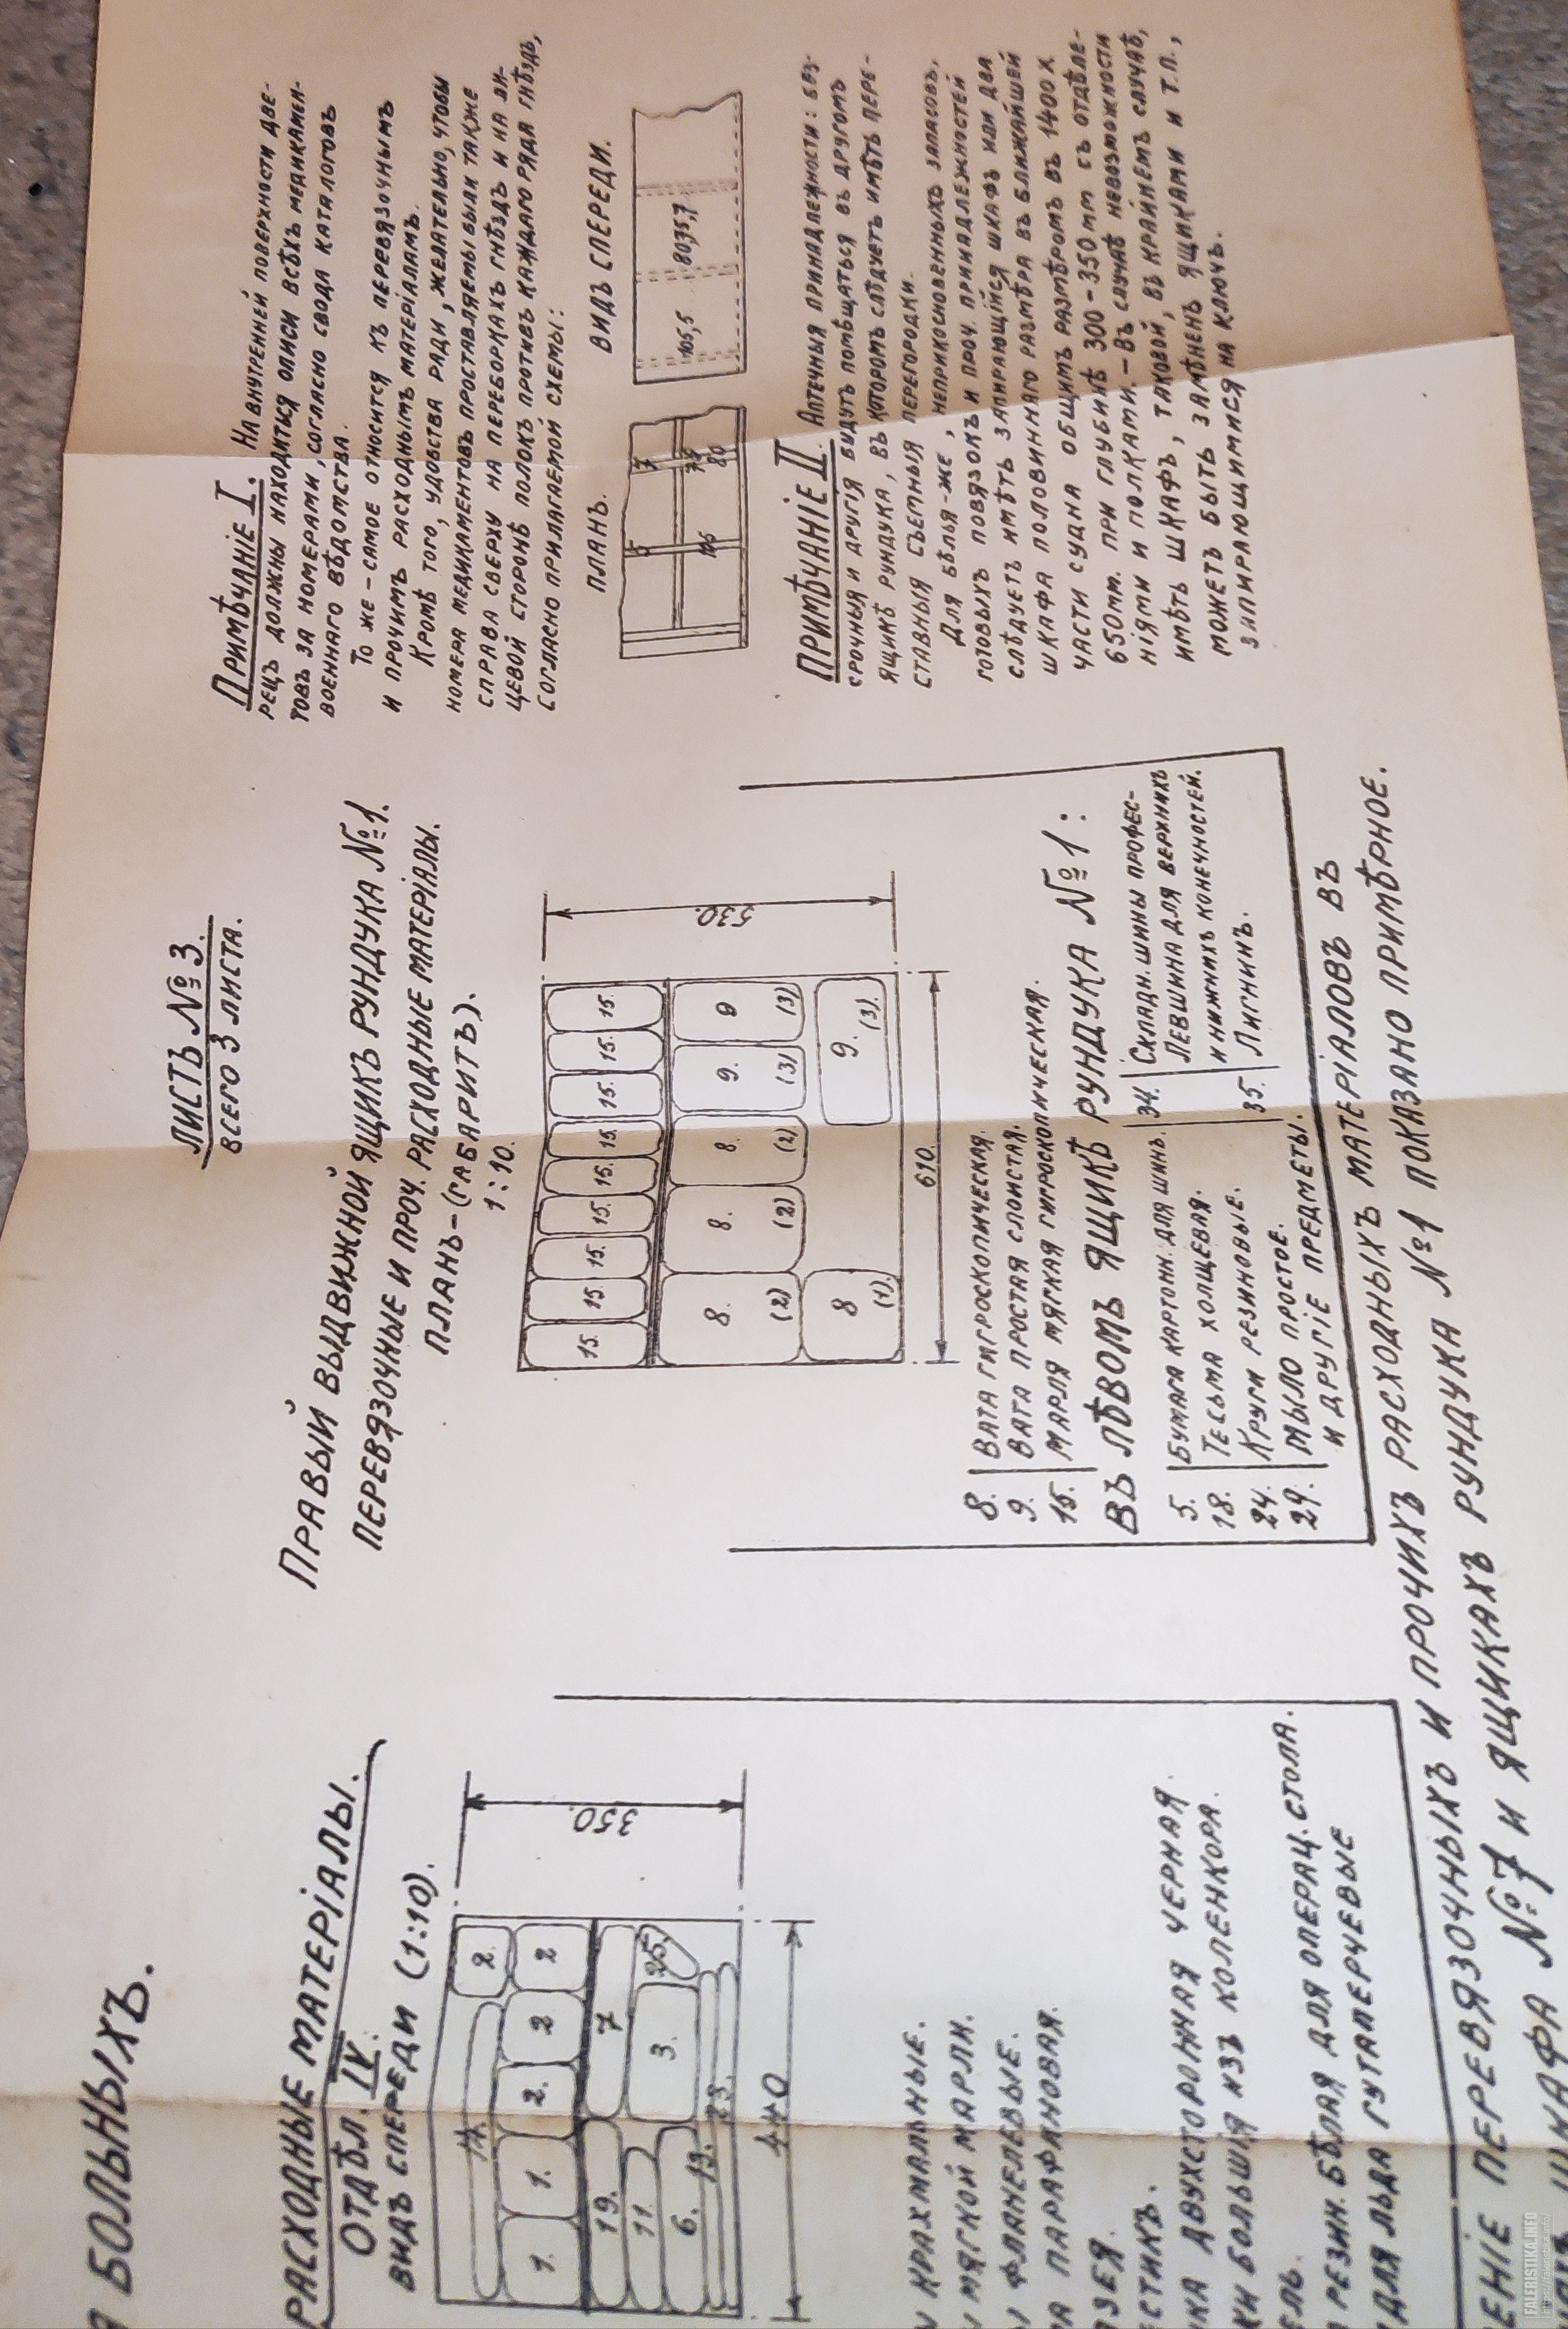 БОЛЬНЫХЪ.
РАСХОДНЫЕ МАТЕРІАЛЫ.
ОТДѢЛ. IV.
ВИДЪ СПЕРЕДИ (1:10).
2.
1. 1. 2. 2 2
19. 7
11. 3. 25.
6.
19. 23.
350.
440
КРАХМАЛЬНЫЕ.
МЯГКОЙ МАРЛИ.
ФЛАНЕЛЕВЫЕ.
ПАРАФИНОВАЯ.
ДВУХСТОРОННАЯ ЧЕРНАЯ.
БОЛЬШІЯ ИЗЪ КОЛЕНКОРА.
РЕЗИН. БѢЛАЯ ДЛЯ ОПЕРАЦ. СТОЛА.
ДЛЯ ЛЬДА ГУТАПЕРЧЕВЫЕ
ЛИСТЪ №3.
ВСЕГО 3 ЛИСТА.
ПРАВЫЙ ВЫДВИЖНОЙ ЯЩИКЪ РУНДУКА №1.
ПЕРЕВЯЗОЧНЫЕ И ПРОЧ. РАСХОДНЫЕ МАТЕРІАЛЫ.
ПЛАНЪ-(ГАБАРИТЪ).
1:10.
15. 15. 15. 15. 15. 15. 15. 15. 15.
8. 8. 8. 9. 9
(2) (2) (2) (3) (3)
8 9.
(1). (3).
530.
610.
8. ВАТА ГИГРОСКОПИЧЕСКАЯ.
9. ВАТА ПРОСТАЯ СЛОИСТАЯ.
15. МАРЛЯ МЯГКАЯ ГИГРОСКОПИЧЕСКАЯ.
ВЪ ЛѢВОМЪ ЯЩИКѢ РУНДУКА №1:
5. БУМАГА КАРТОНН. ДЛЯ ШИНЪ.
18. ТЕСЬМА ХОЛЩЕВАЯ.
24. КРУГИ РЕЗИНОВЫЕ.
29. МЫЛО ПРОСТОЕ.
И ДРУГІЕ ПРЕДМЕТЫ.
34. СКЛАДН. ШИНЫ ПРОФЕС-
ЛЕВШИНА ДЛЯ ВЕРХНИХЪ
И НИЖНИХЪ КОНЕЧНОСТЕЙ.
35. ЛИГНИНЪ.
ПЕРЕВЯЗОЧНЫХЪ И ПРОЧИХЪ РАСХОДНЫХЪ МАТЕРІАЛОВЪ ВЪ
ШКАФА №7 И ЯЩИКАХЪ РУНДУКА №1 ПОКАЗАНО ПРИМѢРНОЕ.
ПРИМѢЧАНІЕ I. НА ВНУТРЕННЕЙ ПОВЕРХНОСТИ ДВЕ-
РЕЦЪ ДОЛЖНЫ НАХОДИТЬСЯ ОПИСИ ВСѢХЪ МЕДИКАМЕН-
ТОВЪ ЗА НОМЕРАМИ, СОГЛАСНО СВОДА КАТАЛОГОВЪ
ВОЕННАГО ВѢДОМСТВА.
ТО ЖЕ-САМОЕ ОТНОСИТСЯ КЪ ПЕРЕВЯЗОЧНЫМЪ
И ПРОЧИМЪ РАСХОДНЫМЪ МАТЕРІАЛАМЪ.
КРОМѢ ТОГО, УДОБСТВА РАДИ, ЖЕЛАТЕЛЬНО, ЧТОБЫ
НОМЕРА МЕДИКАМЕНТОВЪ ПРОСТАВЛЯЕМЫ БЫЛИ ТАКЖЕ
СПРАВА СВЕРХУ НА ПЕРЕБОРКАХЪ ГНѢЗДЪ И НА ЛИ-
ЦЕВОЙ СТОРОНѢ ПОЛОКЪ ПРОТИВЪ КАЖДАГО РЯДА ГНѢЗДЪ,
СОГЛАСНО ПРИЛАГАЕМОЙ СХЕМЫ:
ПЛАНЪ. ВИДЪ СПЕРЕДИ.
5 7
80
105,5 80,35,7
ПРИМѢЧАНІЕ II. АПТЕЧНЫЯ ПРИНАДЛЕЖНОСТИ: БЕЗ-
СРОЧНЫЯ И ДРУГІЯ БУДУТЪ ПОМѢЩАТЬСЯ ВЪ ДРУГОМЪ
ЯЩИКѢ РУНДУКА, ВЪ КОТОРОМЪ СЛѢДУЕТЪ ИМѢТЬ ПЕРЕ-
СТАВНЫЯ СЪЕМНЫЯ ПЕРЕГОРОДКИ.
ДЛЯ БѢЛЬЯ-ЖЕ, НЕПРИКОСНОВЕННЫХЪ ЗАПАСОВЪ,
ГОТОВЫХЪ ПОВЯЗОКЪ И ПРОЧ. ПРИНАДЛЕЖНОСТЕЙ
СЛѢДУЕТЪ ИМѢТЬ ЗАПИРАЮЩІЙСЯ ШКАФЪ ИЛИ ДВА
ШКАФА ПОЛОВИННАГО РАЗМѢРА ВЪ БЛИЖАЙШЕЙ
ЧАСТИ СУДНА ОБЩИМЪ РАЗМѢРОМЪ ВЪ 1400 X
650мм. ПРИ ГЛУБИНѢ 300-350мм СЪ ОТДѢЛЕ-
НІЯМИ И ПОЛКАМИ.-ВЪ СЛУЧАѢ НЕВОЗМОЖНОСТИ
ИМѢТЬ ШКАФЪ, ТАКОВОЙ, ВЪ КРАЙНЕМЪ СЛУЧАѢ,
МОЖЕТЪ БЫТЬ ЗАМѢНЕНЪ ЯЩИКАМИ И Т.П.,
ЗАПИРАЮЩИМИСЯ НА КЛЮЧЪ.
FALERISTIKA.INFO